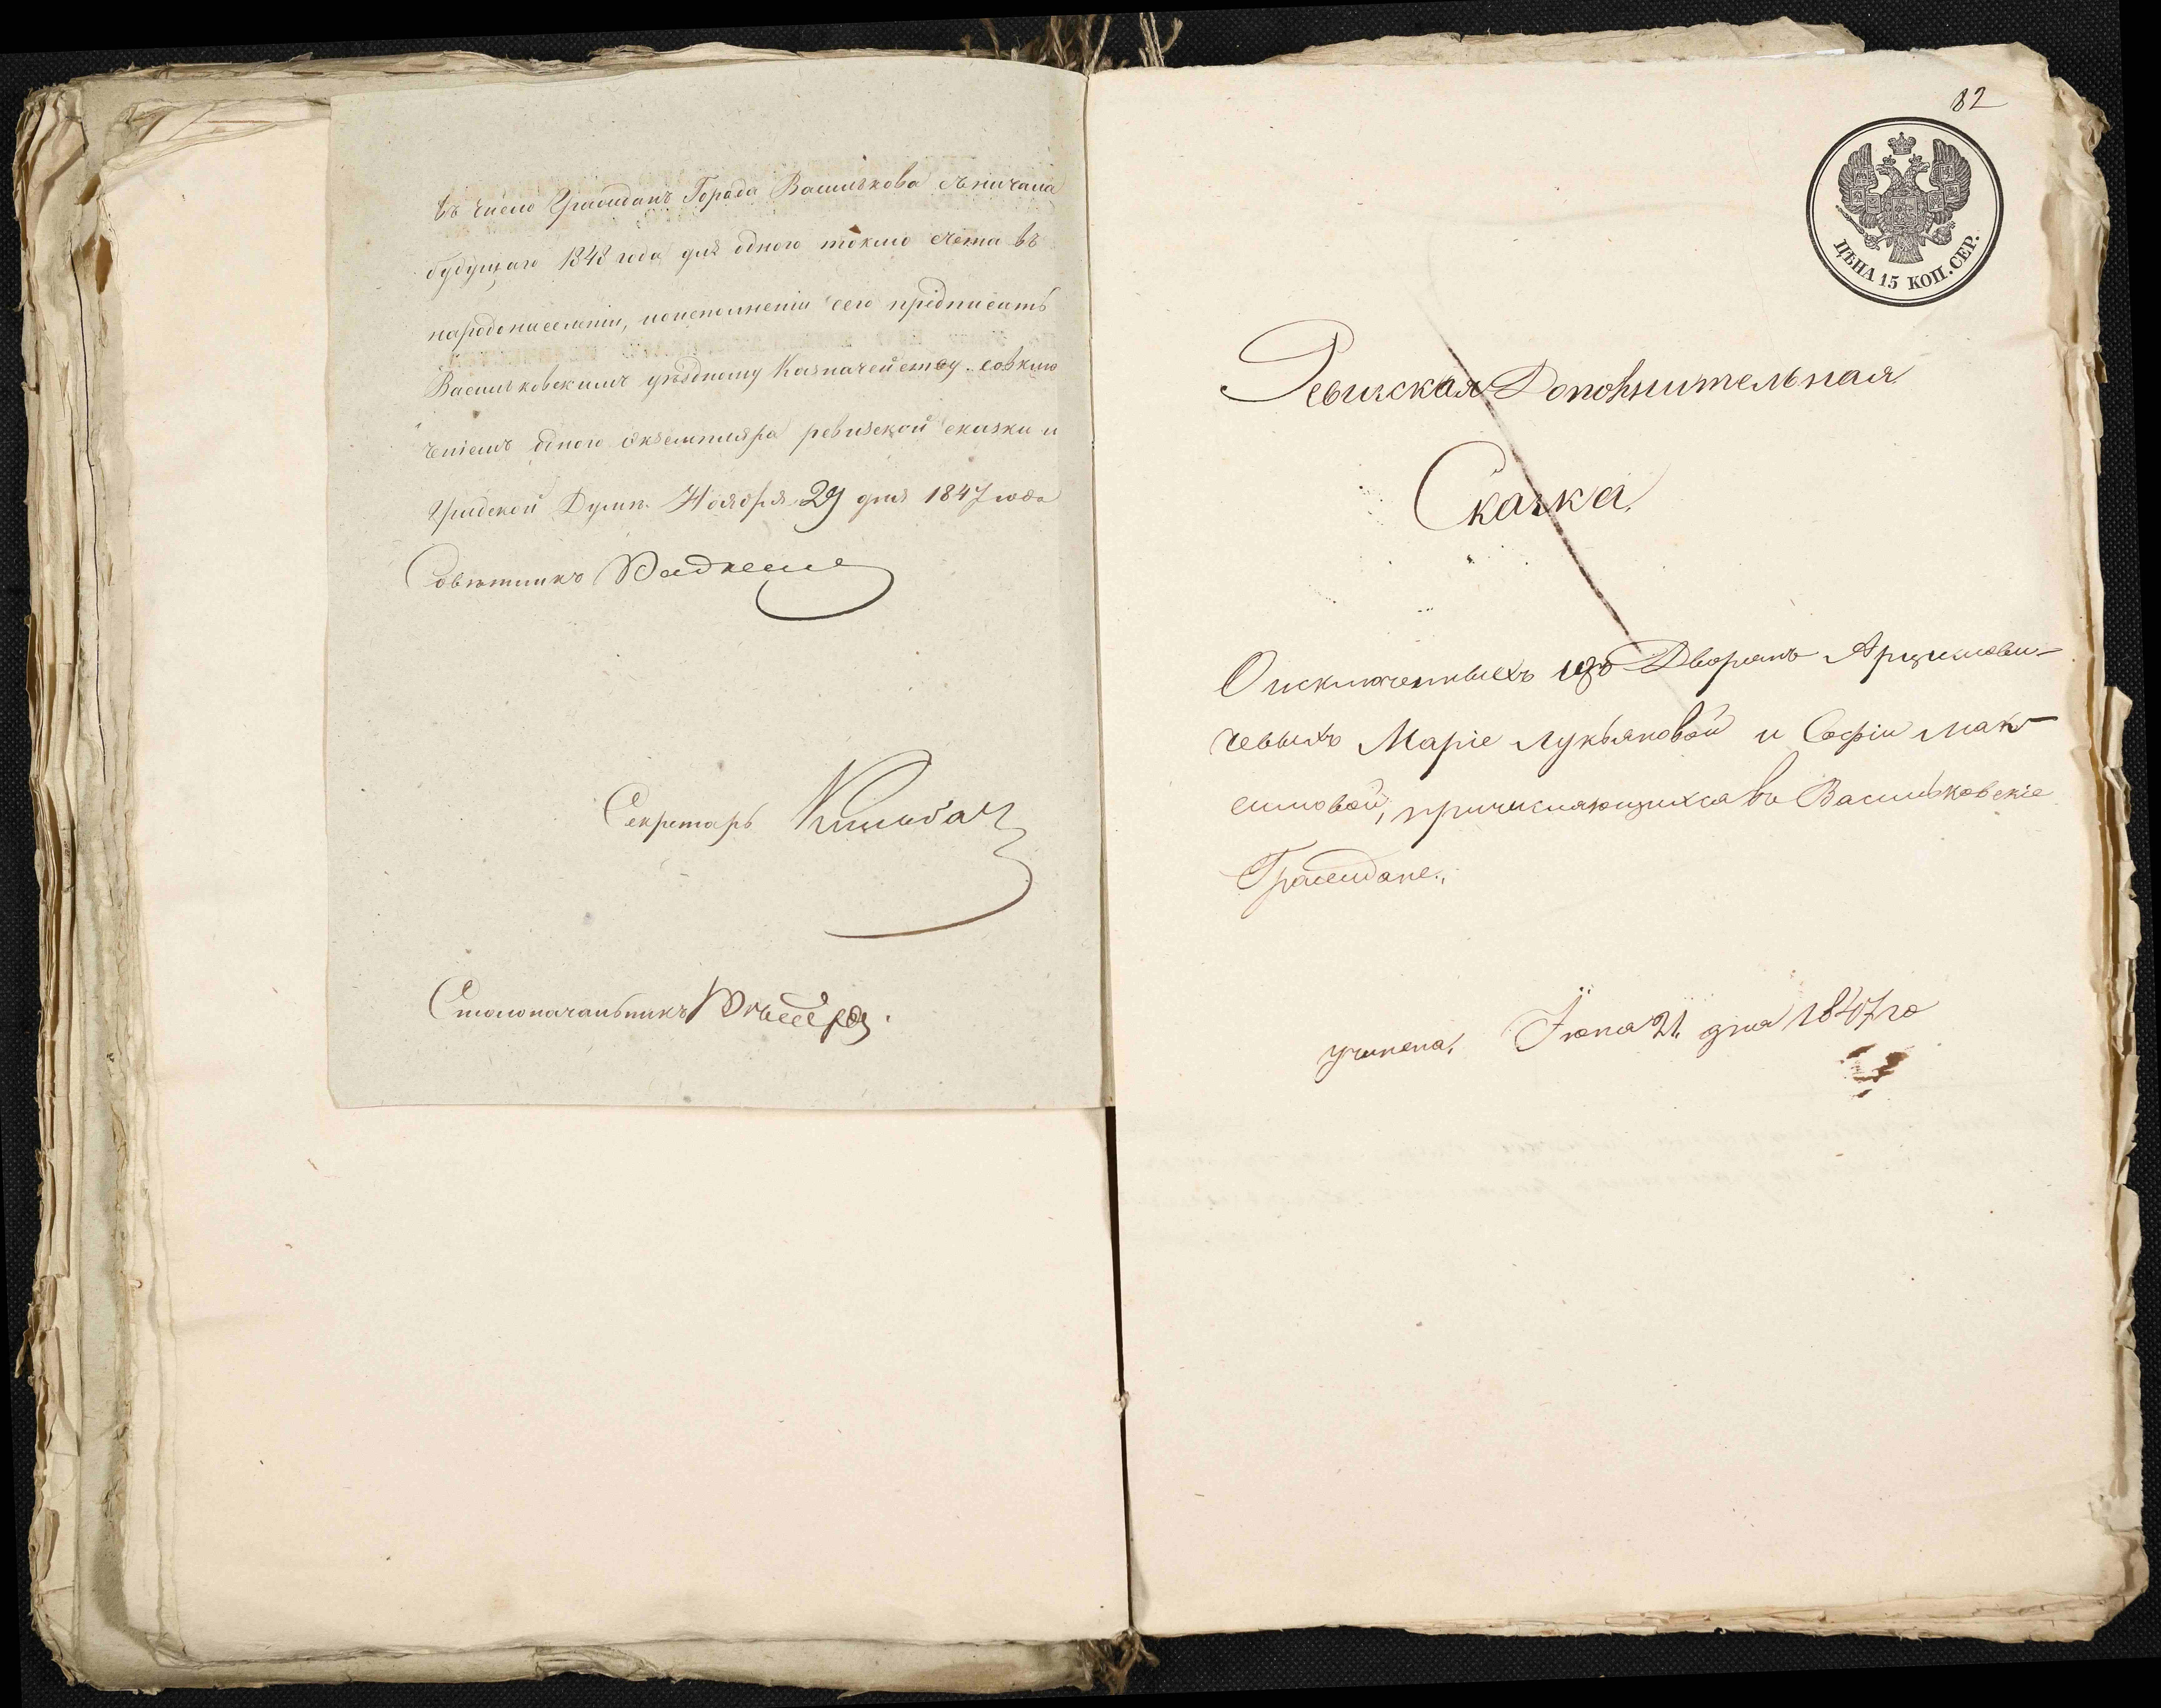 въ число Граждан Города Василькова съ начала
будущаго 1848 года для одного токмо счета въ
народонаселеніи, по исполненіи сего предписать
Васильковскимъ уѣздному Казначейству. со вклю
ченіемъ одного экземпляра ревизской сказки и
Градской Думѣ. Ноября 29 дня 1847 года
Совѣтникъ
Секретарь
Столоначальникъ
82
ЦѢНА 15 КОП. СЕР.
Ревизская Дополнительная
Сказка.
О исключенныхъ изъ Дворянъ Арцимови-
чевыхъ Маріе Лукьяновой и Софіи Мак-
симовой, причисляющихся въ Васильковскіе
Граждане.
учинена. Іюня 21 дня 1847 го